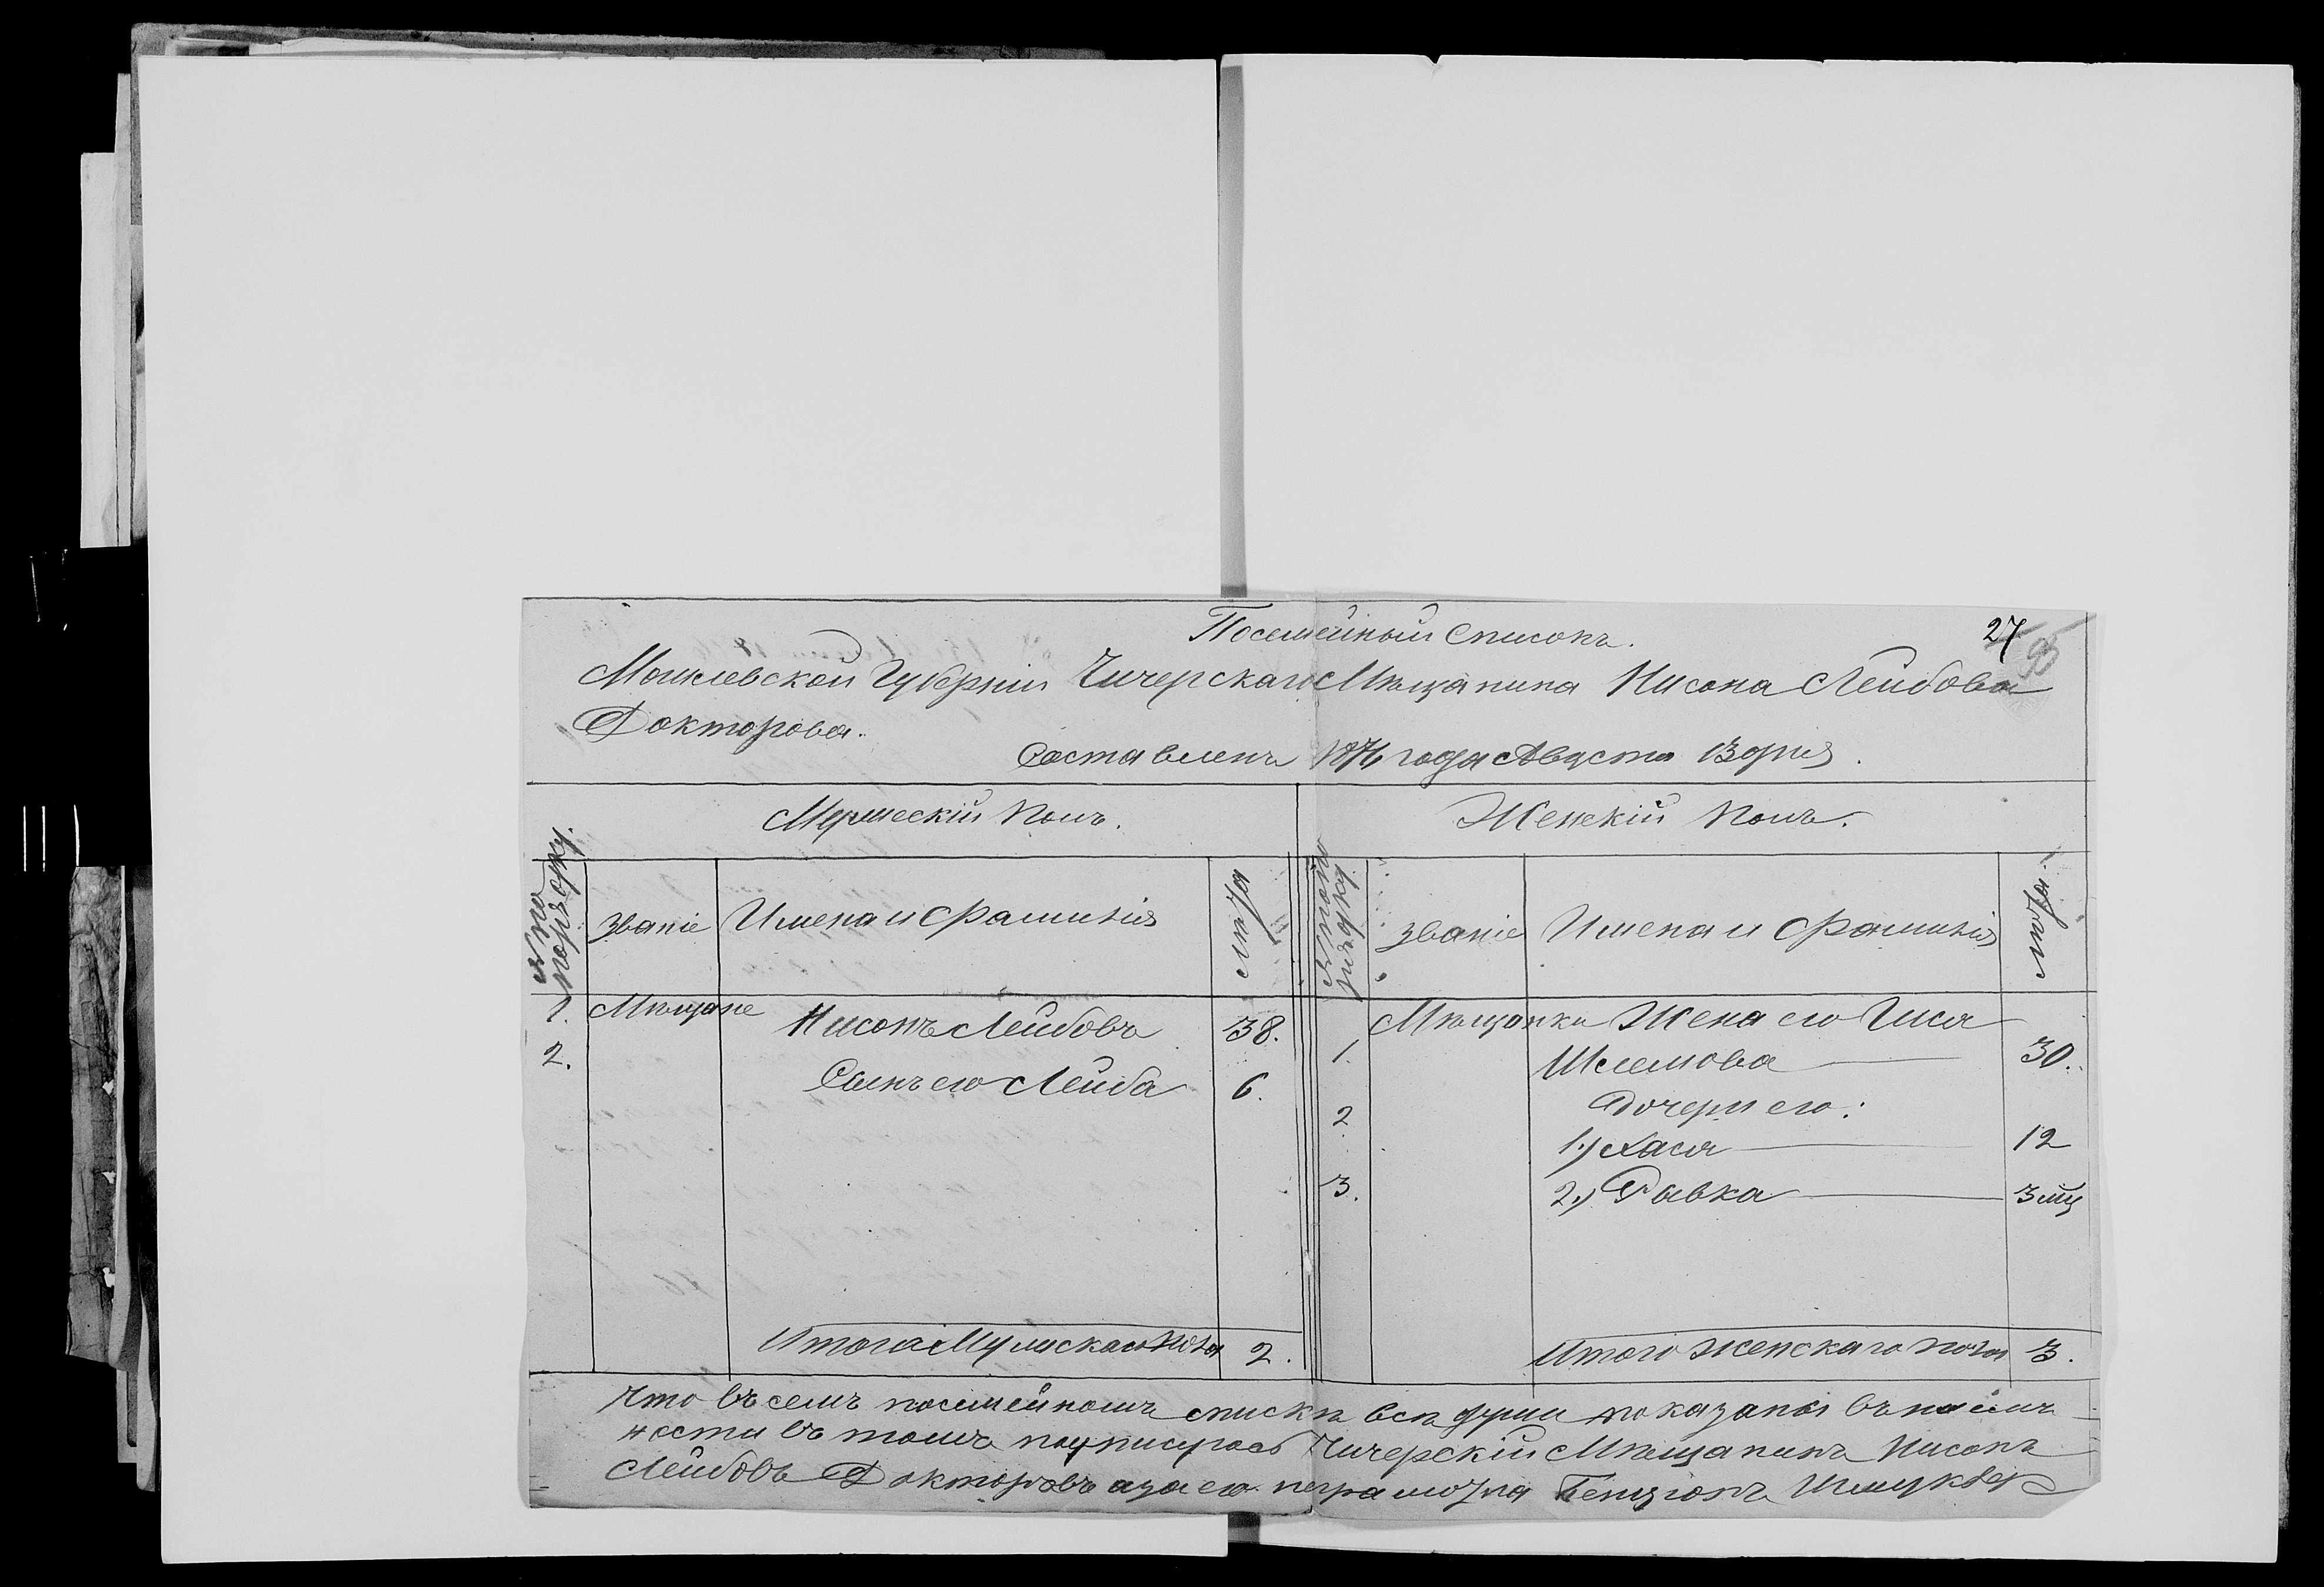 27
Посемейный Списокъ.
Могилевской Губерніи Чичерскаго Мѣщанина Нисона Лейбова
Докторова.
Составленъ 1876 года Августа 13 дня.
Мужескій Полъ.
Женскій Полъ.
№ по порядку.
Званіе
Имена и Фамилія
Лѣта
№ по порядку
Званіе
Имена и Фамилія
Лѣта.
1. Мѣщане Нисонъ Лейбовъ 38.
2. Сынъ его Лейба 6.
Итого Мужскаго пола 2.
Мѣщанки Жена его
1. Шлемова 30.
Дочери его:
2 1.) Хася 12
3. 2.) Рывка 3 мц
Итого Женскаго пола 3.
Что въ семъ посемейномъ спискѣ всѣ души показаны въ налич-
ности въ томъ подписуюсь Чичерскій Мѣщанинъ Нисонъ
Лейбовъ Докторовъ а за его неграмотна Бенціонъ